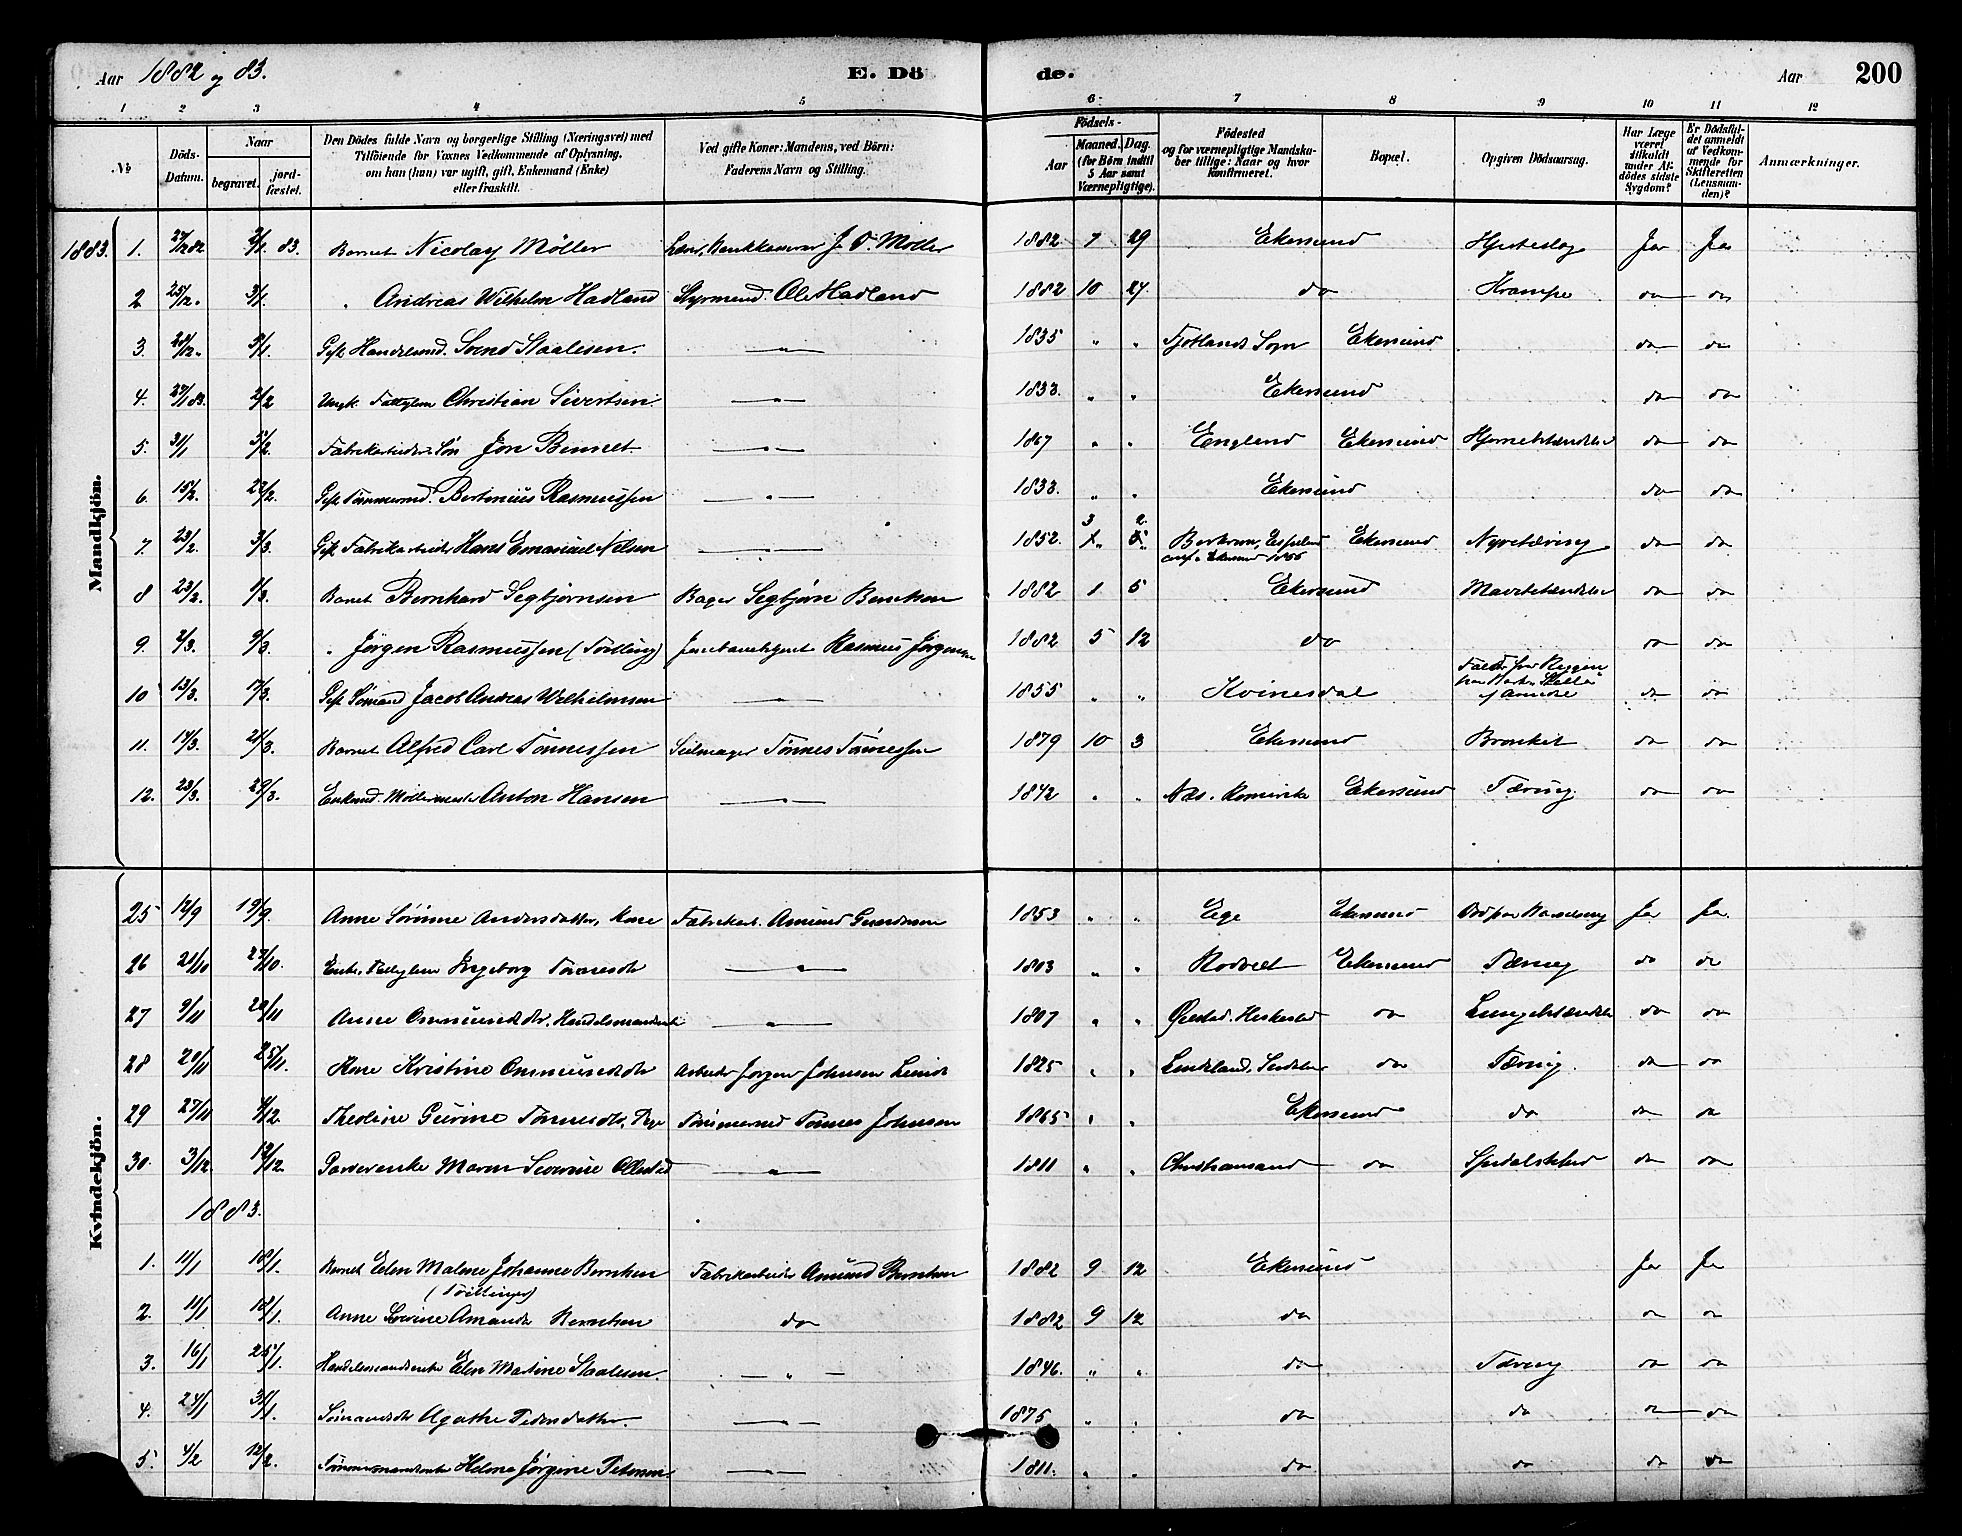 Aar 1882 og 83. E. Dö de. Aar 200
1 2 3 4 5 6 7 8 9 10 11 12
No Döds-Datum. Naar begravet. jord-fæstet. Den Dödes fulde Navn og borgerlige Stilling (Næringsvei) med Tilföiende for Voxnes Vedkommende af Oplysning, om han (hun) var ugift, gift, Enkemand (Enke) eller fraskilt. Ved gifte Koner: Mandens, ved Börn: Faderens Navn og Stilling. Födsels- Aar Maaned. Dag. (for Börn indtil 5 Aar samt Værnepligtige). Födested og for værnepligtige Mandskaber tillige: Naar og hvor konfirmeret. Bopæl. Opgiven Dödsaarsag. Har Læge været tilkaldt under Afdödes sidste Sygdom? Er Dödsfaldet anmeldt af Vedkommende for Skifteretten (Lensmanden)? Anmærkninger.
Mandkjön.
1883. 1. 27/12 82 2/1 83. Barnet Nicolay Möller J. Möller 1882 7 29 Ekersund Ja Ja
2 25/12 3/1 " Andreas Wilhelm Hadland Styrmand Ole Hadland 1882 10 24 do Krampe do do
3. 28/12 5/1 Gift Handelsmd. Svend Staalesen. " 1835 " " Fjotlands Sogn Ekersund do do
4. 27/1 83. 2/2 Ungk. Fattiglem Christian Sivertsen " 1833. " " Ekersund do do
5. 31/1 5/2 Fabrikarbeider Søn Jon Bennet " 1867 " " England Ekersund Hjernebetændelse do do
6. 15/2 22/2 Gift Tømmermd. Bertinius Rasmussen " 1833. " " Ekersund do do
7. 23/2. 3/3. Gift Fabrikarbeider Hans Emanuel Nilsen " 1852. 3 2 Ekersund Nyretæring do do
8 23/2. 1/3. Barnet Bernhard Segbjørnsen Bager Segbjørn Bentsen 1882 1 5 Ekersund Mavebetændelse do do
9. 2/3. 9/3. " Jørgen Rasmussen (Tvilling) Rasmus Jørgensen 1882 5 12 do do do
10 13/3 17/3. Gift Sømand Jacob Andreas Wilhelmsen " 1855 " " Kvinesdal do do
11. 14/3. 21/3. Barnet Alfred Carl Tønnessen Seilmager Tønnes Tønnessen 1879 10 3 Ekersund Bronkit do do
12. 23/3. 29/3. Enkemd. Møllermester Anton Hansen " 1842 " " Næs. Romerike Ekersund Tæring do do
Kvindekjön.
25 12/9 19/9. Anne Sørine Andersdatter, Kone Fabrikarb. Amund 1853 " " Ege Ekersund Ja Ja
26 21/10 27/10. Enke, Fattiglem Ingeborg Tønnesdtr " 1803 " " Rodvelt Ekersund Tæring do do
27 9/11 20/11 Anne Ommundsdtr. Handelsmandsenke " 1807 " " Heskestad do Lungebetændelse do do
28 20/11 25/11. Kone Kristine Ommundsdtr Arbeider Jørgen Johnsen Lund 1825 " " do Tæring do do
29 27/11 4/12 Theoline Gurine Tønnesdtr, Pige Tømmermd Tønnes Johnsen 1865 " " Ekersund do do do
30. 3/12. 12/12. Maren Severine Ollestad " 1811 " " Christiansand do Spedalskhed do do
1883.
1. 11/1 18/1. Barnet Elen Malene Johanne Berntsen Fabrikarbeider Amund Berntsen 1882 9 12 Ekersund Ja Ja
(Tvillinger)
2. 11/1 18/1. Anne Sørine Amanda Berntsen do 1882 9 12 do do do
3. 16/1 25/1. Handelsmandsenke Elen Martine Staalesen. " 1846. " " do Tæring do do
4. 24/1 31/1. Sømandsdtr Agathe Pedersdatter. 1875 " " do do do do
5. 4/2 12/2. Helene Jørgine Petersen 1811. " " do do do do